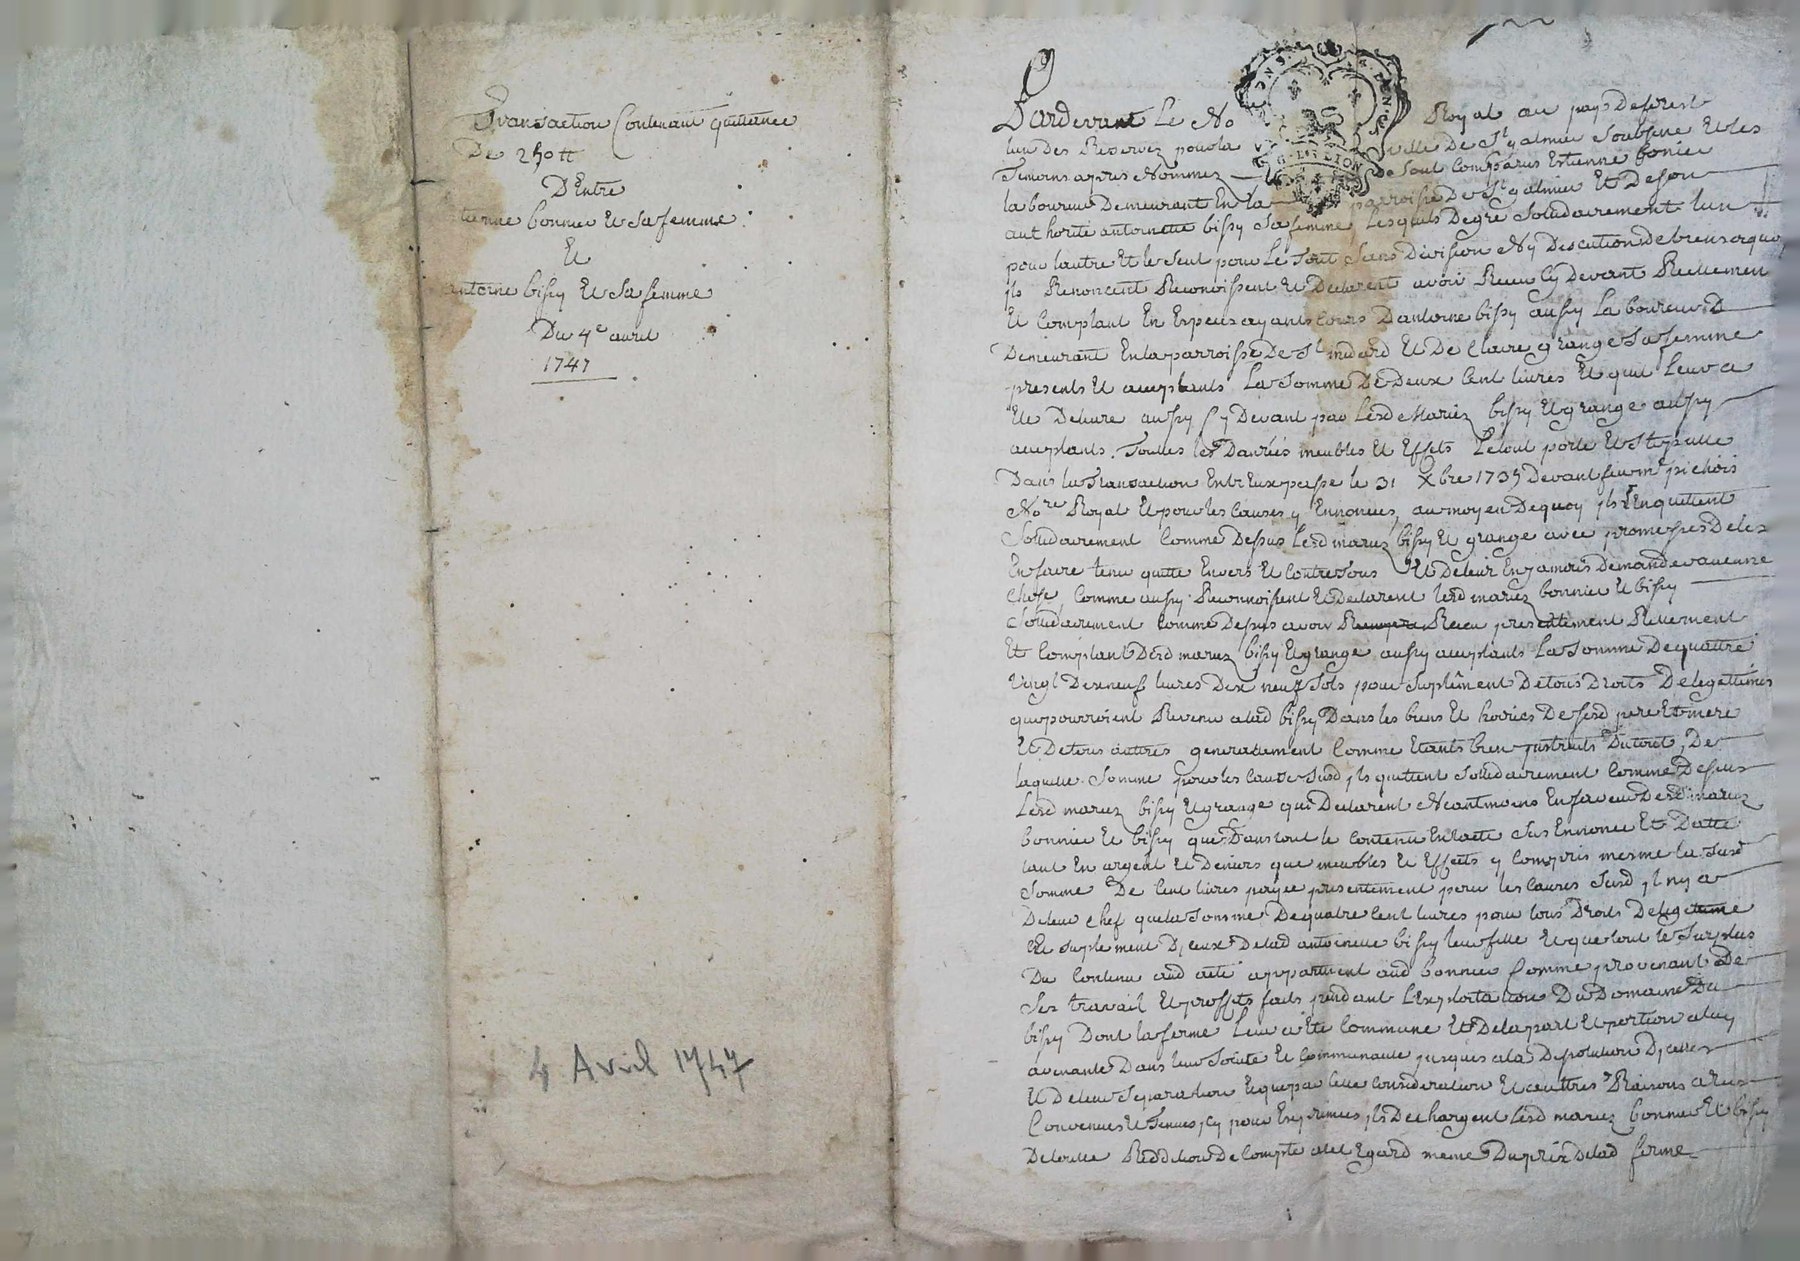 Transaction Contenant quittance
De 250 tt
D Entre
Etienne bonnier et sa femme
Et
antoine bissy et sa femme
Du 4e avril
1747
4 Avril 1747
Pardevant Le No Royal au pays deforest
lun des Reservez pour la ville De St galmier Soubsigné Et les
Temoins apres Nommez Sont Comparus Estienne bonier
laboureur Demeurant En la parroisse De St galmier Et De son
authorité antoinette bissy Sa femme, Lesquels De gré Solidairement lun
pour lautre Et le Seul pour Le Tout Sans Division Ny Discution De biens a quoy
ils Renoncent Reconoissent Et Declarent avoir Receu Cy Devant Reellement
Et Comptant En Especes ayants Cours D antoine bissy aussy Laboureur
Demeurant En la parroisse De St medard Et De Claire grange Sa femme
presents Et acceptants La Somme De Deux Cent livres Et quil Leur a
Eté Delivré aussy Cy Devant par Lesd Mariez bissy Et grange aussy
acceptants. Touttes les Danrées meubles Et Effets Le tout porté Et Stipullé
Dans la Transaction Entr Eux passé le 31 Xbre 1735 Devant feu me pichois
Nore Royal Et pour les Causes y Ennoncées, au moyen De quoy ils En quittent
Solidairement Comme Dessus Lesd mariez bissy Et grange avec promesses De les
En faire tenir quitte Envers Et Contre Tous Et De leur En jamais Demander aucune
Chose, Comme aussy Reconnoissent Et Declarent lesd mariez bonnier Et bissy
Solidairement Comme Dessus avoir Receu presentement Reellement
Et Comptant Desd mariez bissy Et grange aussy acceptants La Somme De quattre
vingt Dixneuf livres Dix neuf Sols pour Suplément De tous Droits De legettimes
que pourroient Revenir a lad bissy Dans les biens Et hoiries De sesd pere Et mere
Et De tous autres generallement Comme Etants bien instruits Du tout, De
laquelle Somme pour les Causes Susd ils quittent Solidairement Comme Dessus
Lesd mariez bissy Et grange qui Declarent Neantmoins En faveur Desd mariez
bonnier Et bissy que Dans tout le Contenu En lacte Sus Ennoncé Et Datte
tant En argent Et Deniers que meubles Et Effects y Compris mesme la Susd
Somme De Cent livres payée presentement pour les Causes Susd il ny a
De leur Chef que la Somme De quatre Cent livres pour tous Droits De legetime
Et Suplement D iceux De lad antoinette bissy leur fille Et que tout le Surplus
Du Contenu aud acte appartient aud bonnier Comme provenant De
Ses travail Et proffits faits pendant L Exploitation Du Domaine Du
bissy Dont la ferme Leur a Eté Commune Et De la part Et portion a luy
avenante Dans leur Société Et Communauté jusques a la Dissolution D icelle
Et De leur Separation Et que par Cette Consideration Et auttres Raisons a Eux
Convenues Et Tenues icy pour Exprimées ils Dechargent Lesd mariez bonnier Et bissy
De toutte Reddition De Compte a cet Egard meme Du prix De lad ferme